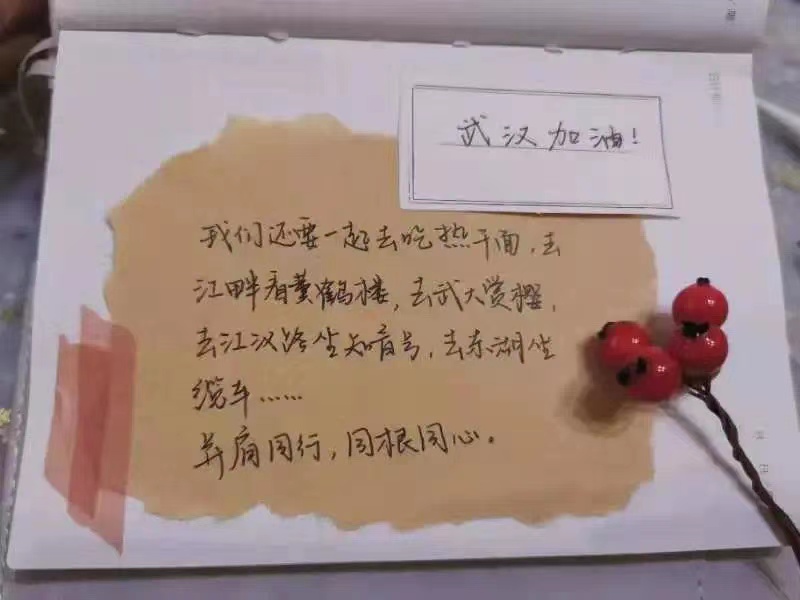 武汉加油!
我们还要一起去吃热干面,去
江畔看黄鹤楼,去武大赏樱,
去江汉路坐知音号,去东湖坐
缆车……
并肩同行,同根同心。